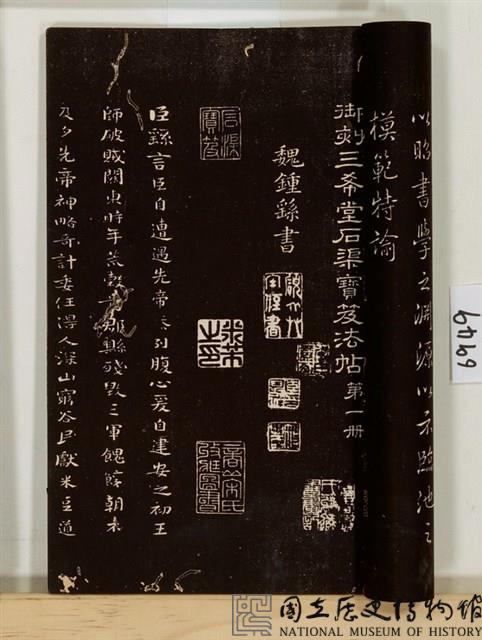 以昭書學之淵源以示臨池之
模範特論
御刻三希堂石渠寶笈法帖第一冊
魏鍾繇書
石渠寶笈
米芾之印
臣繇言臣自遭遇先帝忝列腹心爰自建安之初王
師破賊關東時年荒穀貴郡縣殘毀三軍餽饟朝不
及夕先帝神略奇計委任得人深山窮谷民獻米豆道
國立歷史博物館
NATIONAL MUSEUM OF HISTORY